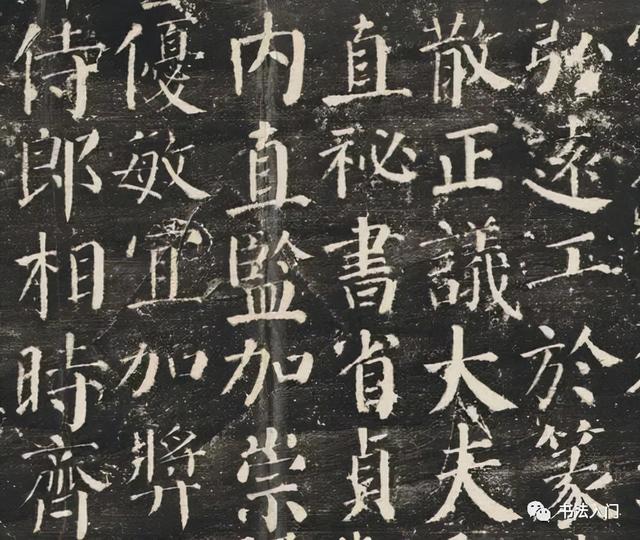 弘遠工於篆
散正議大夫
直秘書省貞
内直監加崇
優敏宜加奨
侍郎相時齊
书法入门